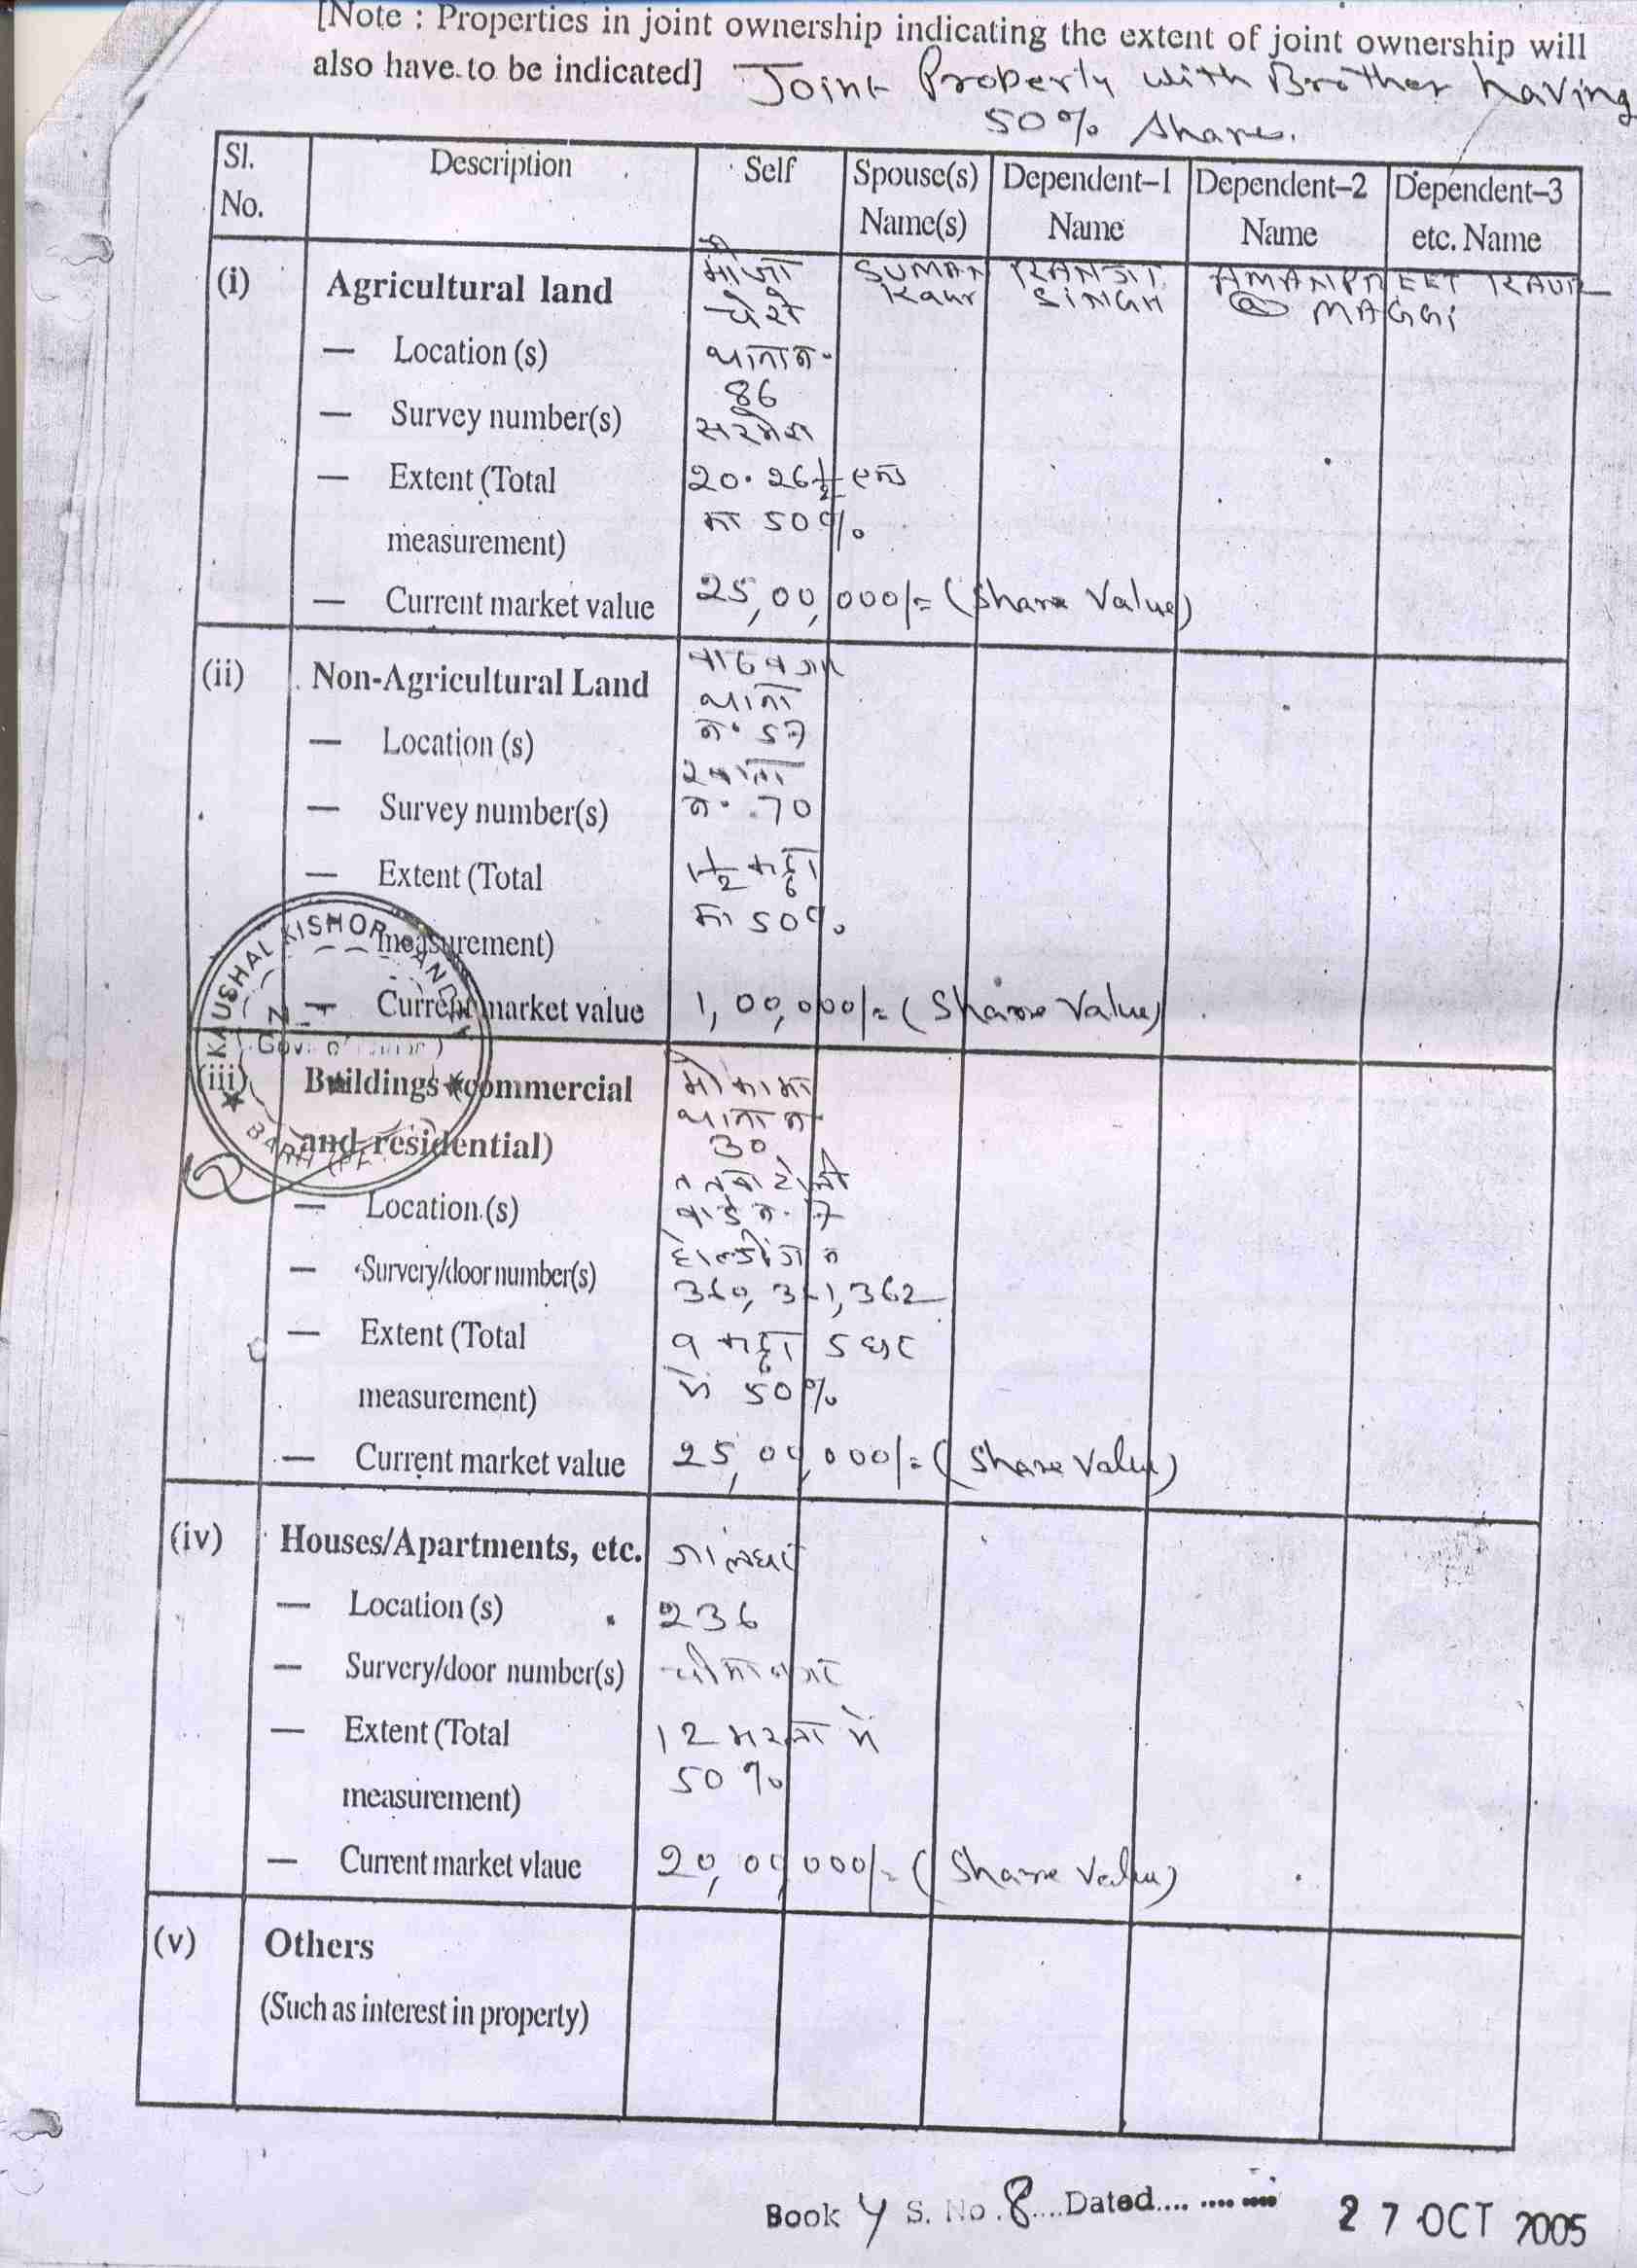 [Note : Properties in joint ownership indicating the extent of joint ownership will
also have to be indicated] Joint Property with Brother having
50% Share.
Sl. No.
Description
Self
Spouse(s) Name(s)
Dependent–1 Name
Dependent–2 Name
Dependent–3 etc. Name
(i) Agricultural land
मौजा
SUMAN Kaur
RANJIT SINGH
AMANPREET KAUR @ MAGGI
— Location (s)
थाना न०
86
— Survey number(s)
— Extent (Total
20.26½
measurement)
का 50%
— Current market value 25,00,000/= (Share Value)
(ii) Non-Agricultural Land
थाना
— Location (s)
न० 57
खाता
— Survey number(s)
न० 70
— Extent (Total
1½ कट्ठा
measurement)
का 50%
— Current market value 1,00,000/= (Share Value)
(iii) Buildings (commercial
मोकामा
थाना न
and residential)
30
— Location (s)
वार्ड न० 7
— Survery/door number(s)
होल्डींग न
362
— Extent (Total
9 कट्ठा 5 धुर
measurement)
में 50%
— Current market value 25,00,000/= (Share Value)
(iv) Houses/Apartments, etc.
जालंधर
— Location (s)
236
— Survery/door number(s)
— Extent (Total
12 मरला में
measurement)
50%
— Current market vlaue 20,00,000/= (Share Value)
(v) Others
(Such as interest in property)
KAUSHAL KISHOR
BARH
Book 4 S. No. 8....Dated.... .... .... 27 OCT 2005